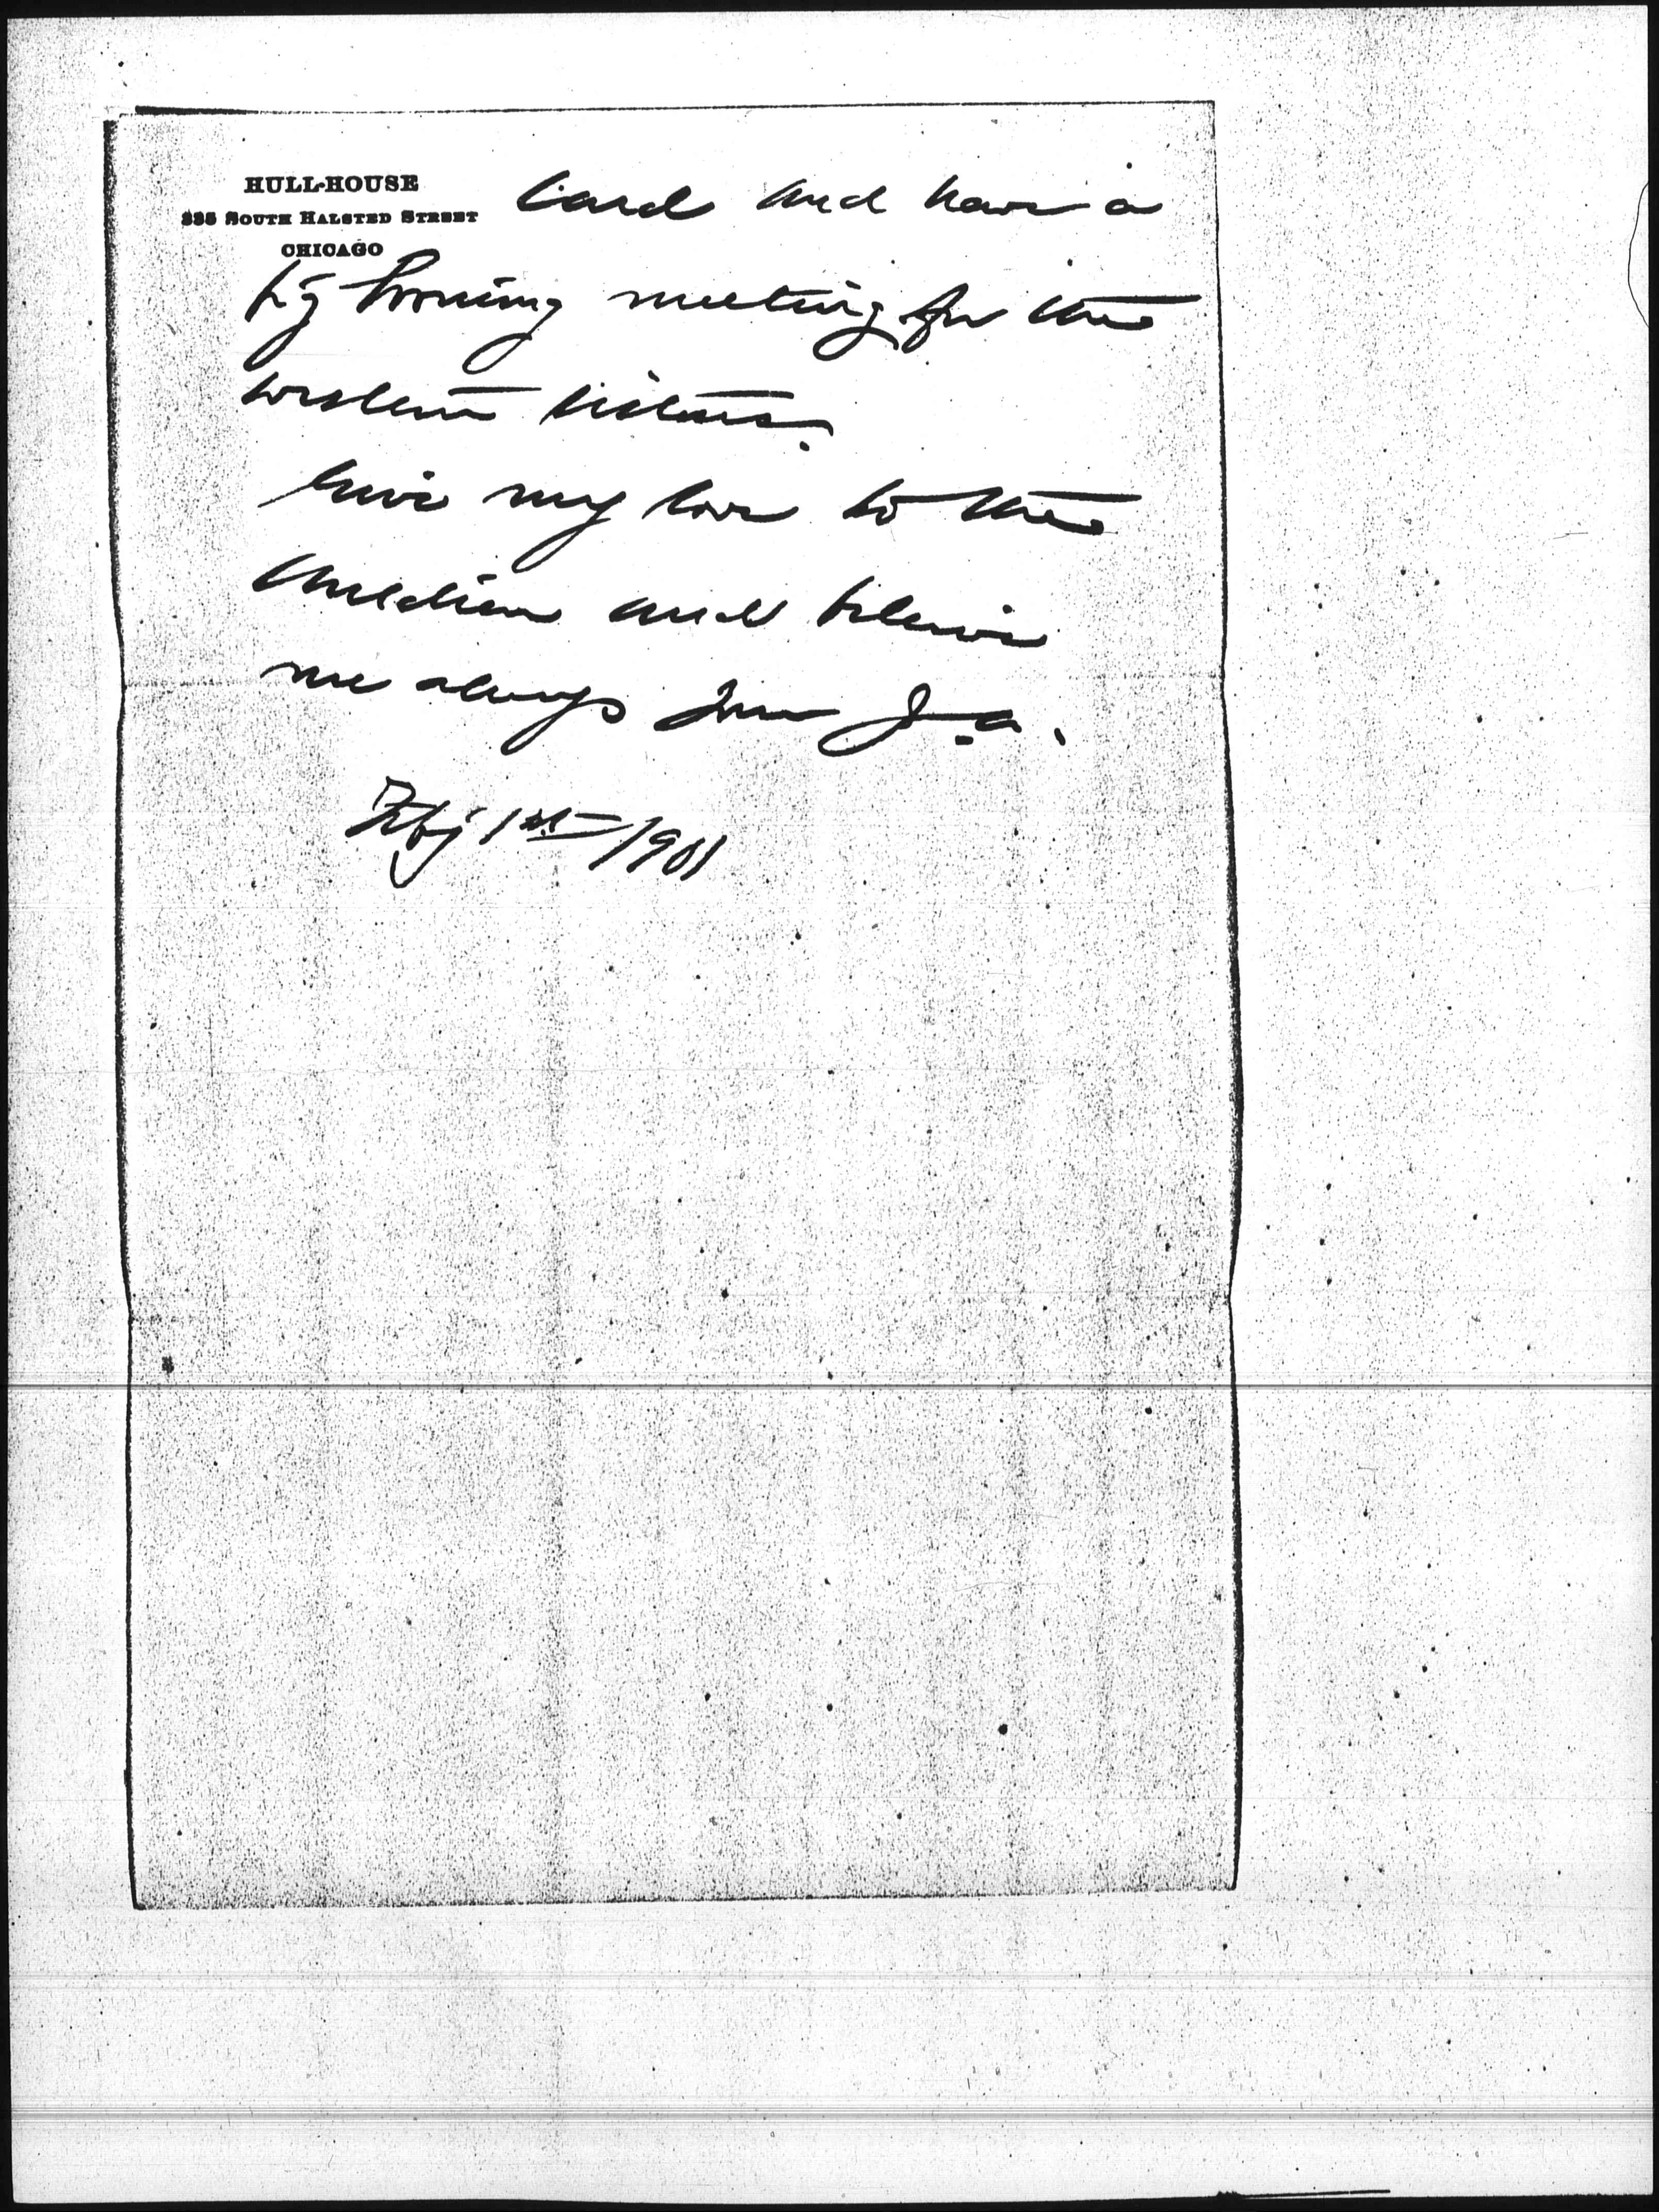 HULL-HOUSE
335 SOUTH HALSTED STREET
CHICAGO
card and have a
big evening meeting for the
western visitors.
Give my love to the
children and believe
me always Your J. A.
Feby 1st 1901